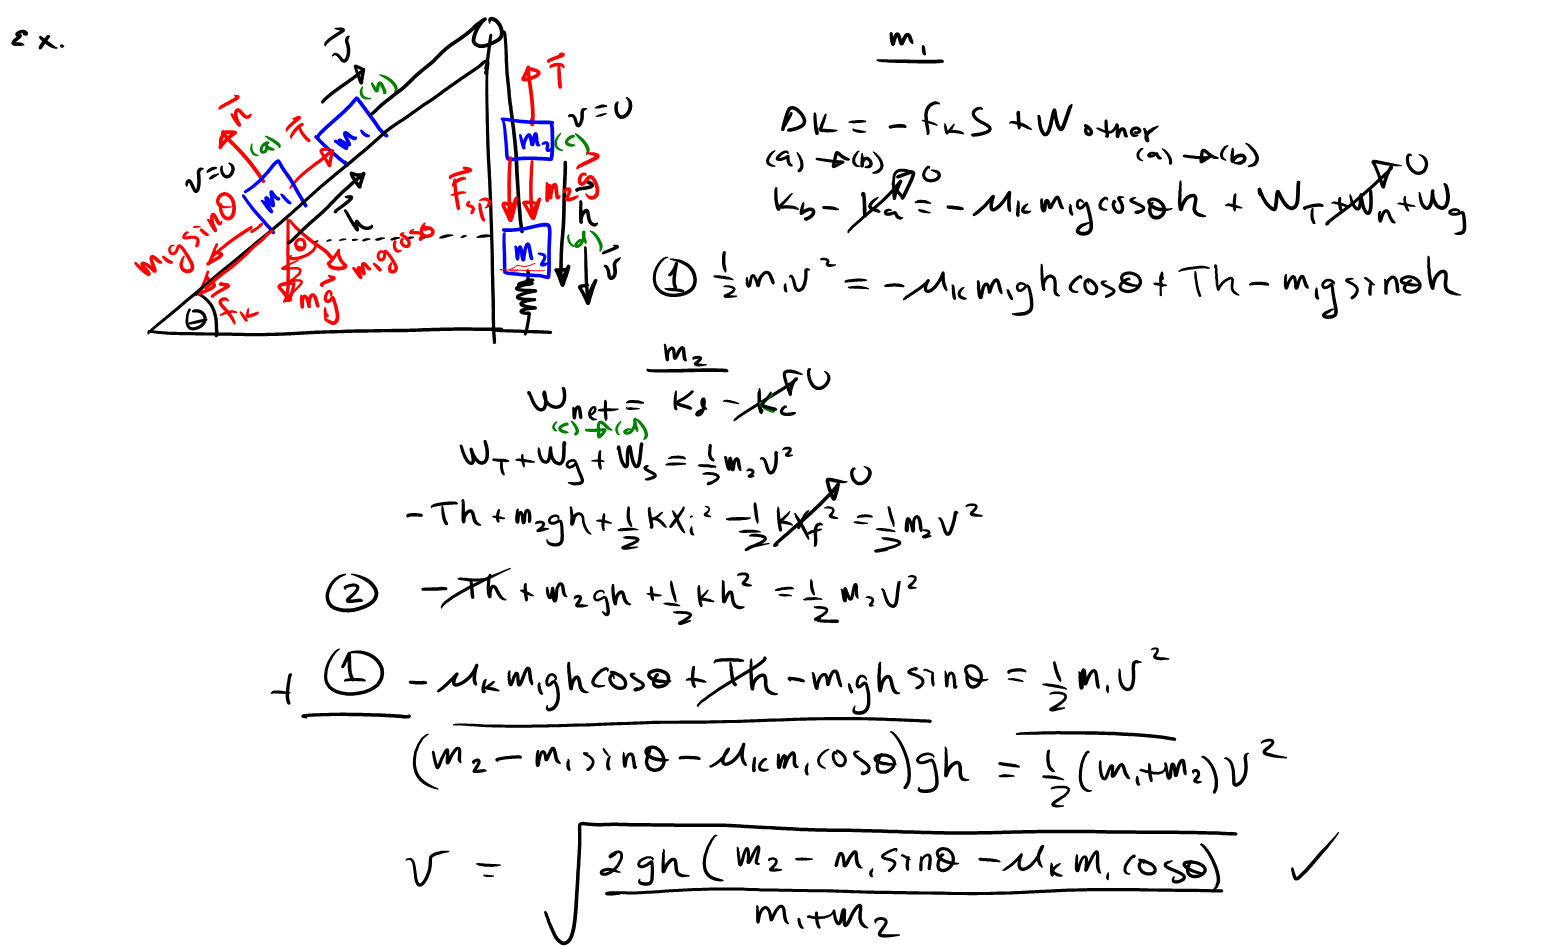 Ex.
v⃗
(b)
n⃗
(a)
T⃗
m₁
v=0
m₁
h⃗
m₁g sinθ
θ
m₁g cosθ
mg⃗
f⃗k
θ
T⃗
v=0
m₂
(c)
F⃗sp
m₂g⃗
h⃗
(d)
m₂
v⃗
m₁
ΔK = - fₖS + W other
(a) → (b) (a) → (b)
K_b - K_a = - μₖm₁g cosθ h + W_T + W_n + W_g
0 0
① ½ m₁v² = - μₖm₁gh cosθ + Th - m₁g sinθ h
m₂
W net = K_d - K_c 0
(c) → (d)
W_T + W_g + W_s = ½ m₂v²
- Th + m₂gh + ½ kxᵢ² - ½ kx_f² = ½ m₂v²
0
② - Th + m₂gh + ½ kh² = ½ m₂v²
+ ① - μₖm₁gh cosθ + Th - m₁gh sinθ = ½ m₁v²
(m₂ - m₁ sinθ - μₖm₁ cosθ)gh = ½ (m₁+m₂)v²
v = √(2gh (m₂ - m₁ sinθ - μₖm₁ cosθ) / m₁+m₂) ✓